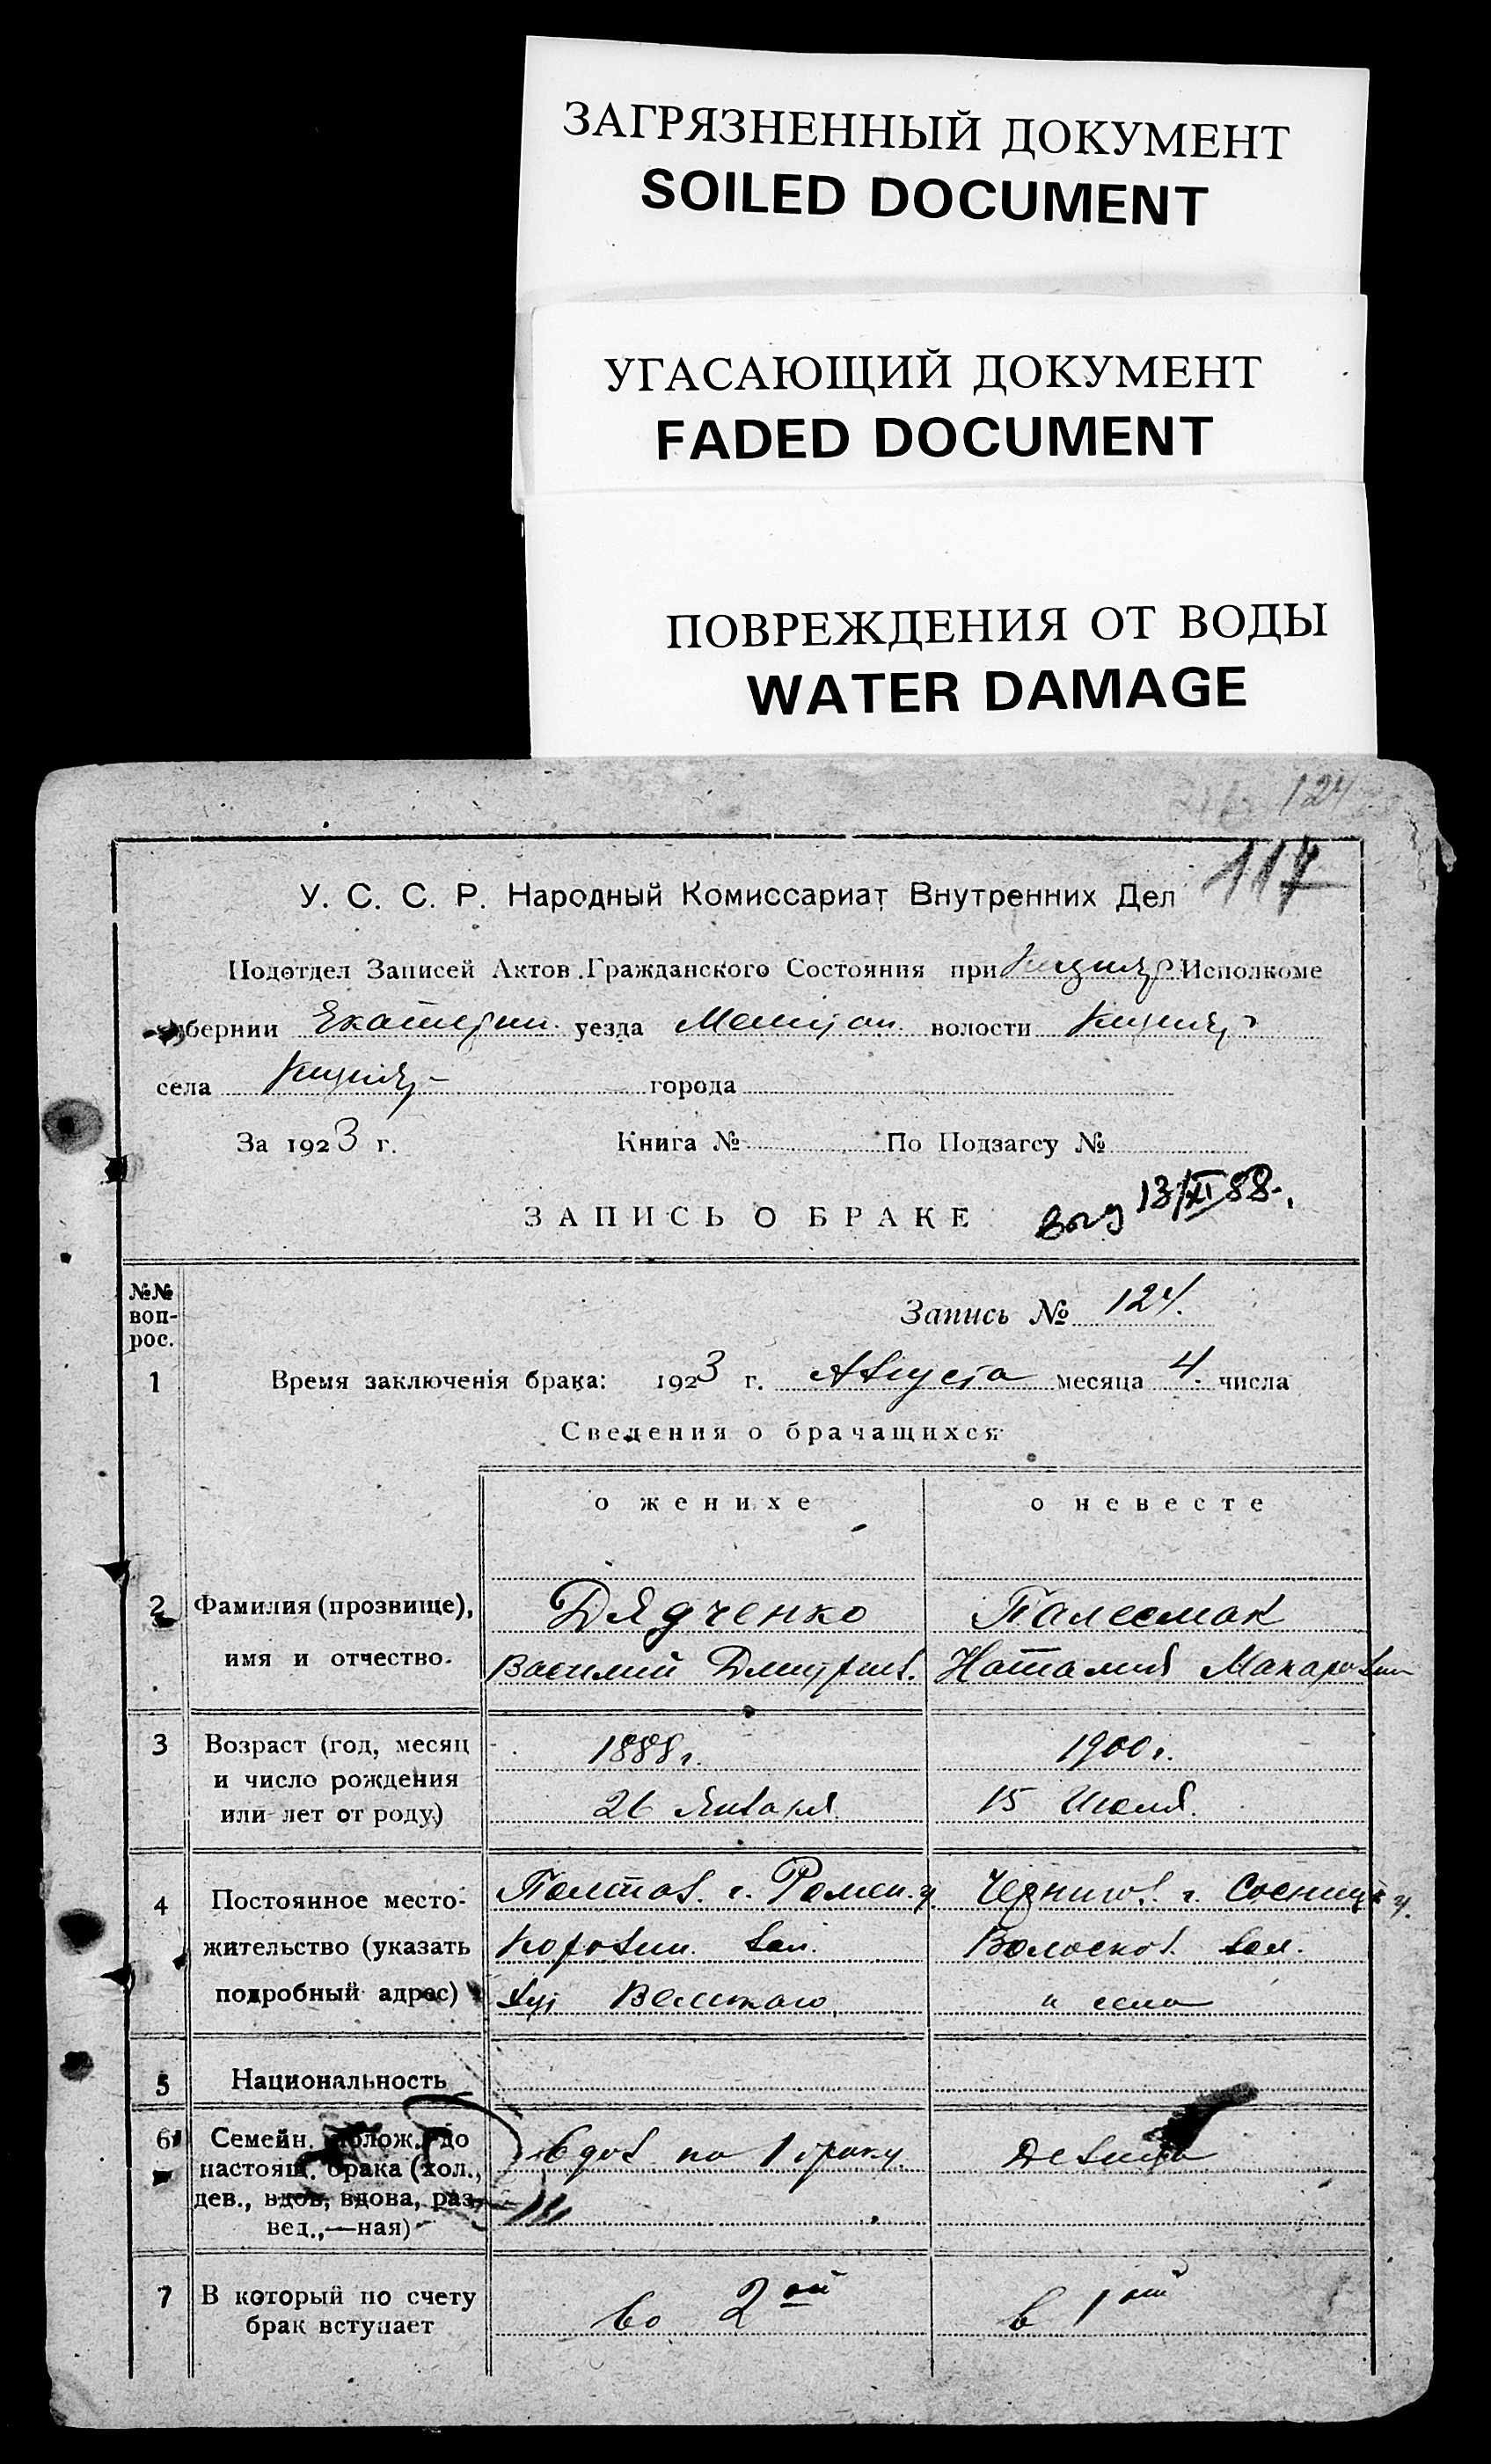 ЗАГРЯЗНЕННЫЙ ДОКУМЕНТ
SOILED DOCUMENT
УГАСАЮЩИЙ ДОКУМЕНТ
FADED DOCUMENT
ПОВРЕЖДЕНИЯ ОТ ВОДЫ
WATER DAMAGE
124
117
У. С. С. Р. Народный Комиссариат Внутренних Дел
Подотдел Записей Актов Гражданского Состояния при Исполкоме
губернии Екатерин. уезда волости
села города
За 1923 г. Книга № По Подзагсу №
ЗАПИСЬ О БРАКЕ 13/XI 88.
№№ вопрос.
Запись № 124.
1 Время заключенія брака: 1923 г. Августа месяца 4. числа
Сведения о брачащихся
о женихе о невесте
2 Фамилия (прозвище), Дядченко Палесмак
имя и отчество. Василий Дмитрив. Наталия Макаровин
3 Возраст (год, месяц 1888 г. 1900 г.
и число рождения
или лет от роду) 26 Января 15 Июля.
4 Постоянное место- Полтов. г. Ромен. у. Чернигов. г. Сосницк у.
жительство (указать вол. вол.
подробный адрес) и села
5 Национальность
6 Семейн. полож. до вдов по 1 браку Девица
настоящ. брака (хол.,
дев., вдов, вдова, раз-
вед.,—ная)
7 В который по счету во 2ой в 1ый
брак вступает